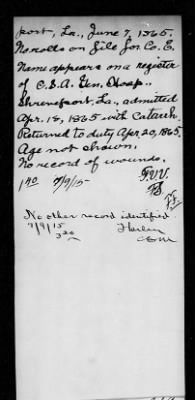 port, La., June 7, 1865.
No rolls on file for Co. E.
Name appears on a register
of C.S.A. Gen. Hosp.,
Shreveport, La., admitted
Apr. 15, 1865 with Catarrh.
Returned to duty Apr. 20, 1865.
Age not shown.
No record of wounds.
7/9/15
No other record identified.
7/9/15